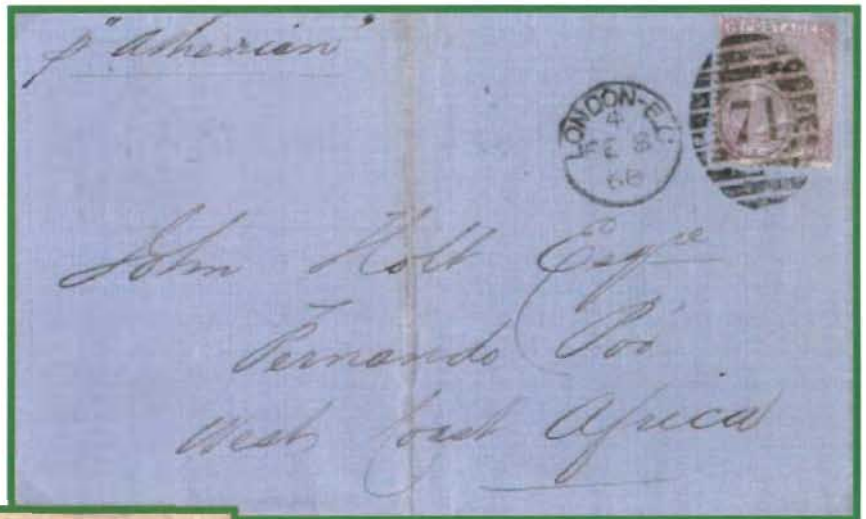 p "Athenian"
LONDON-E.C
4
68
71
John Holt Esqre
Fernando Poo
West Coast Africa